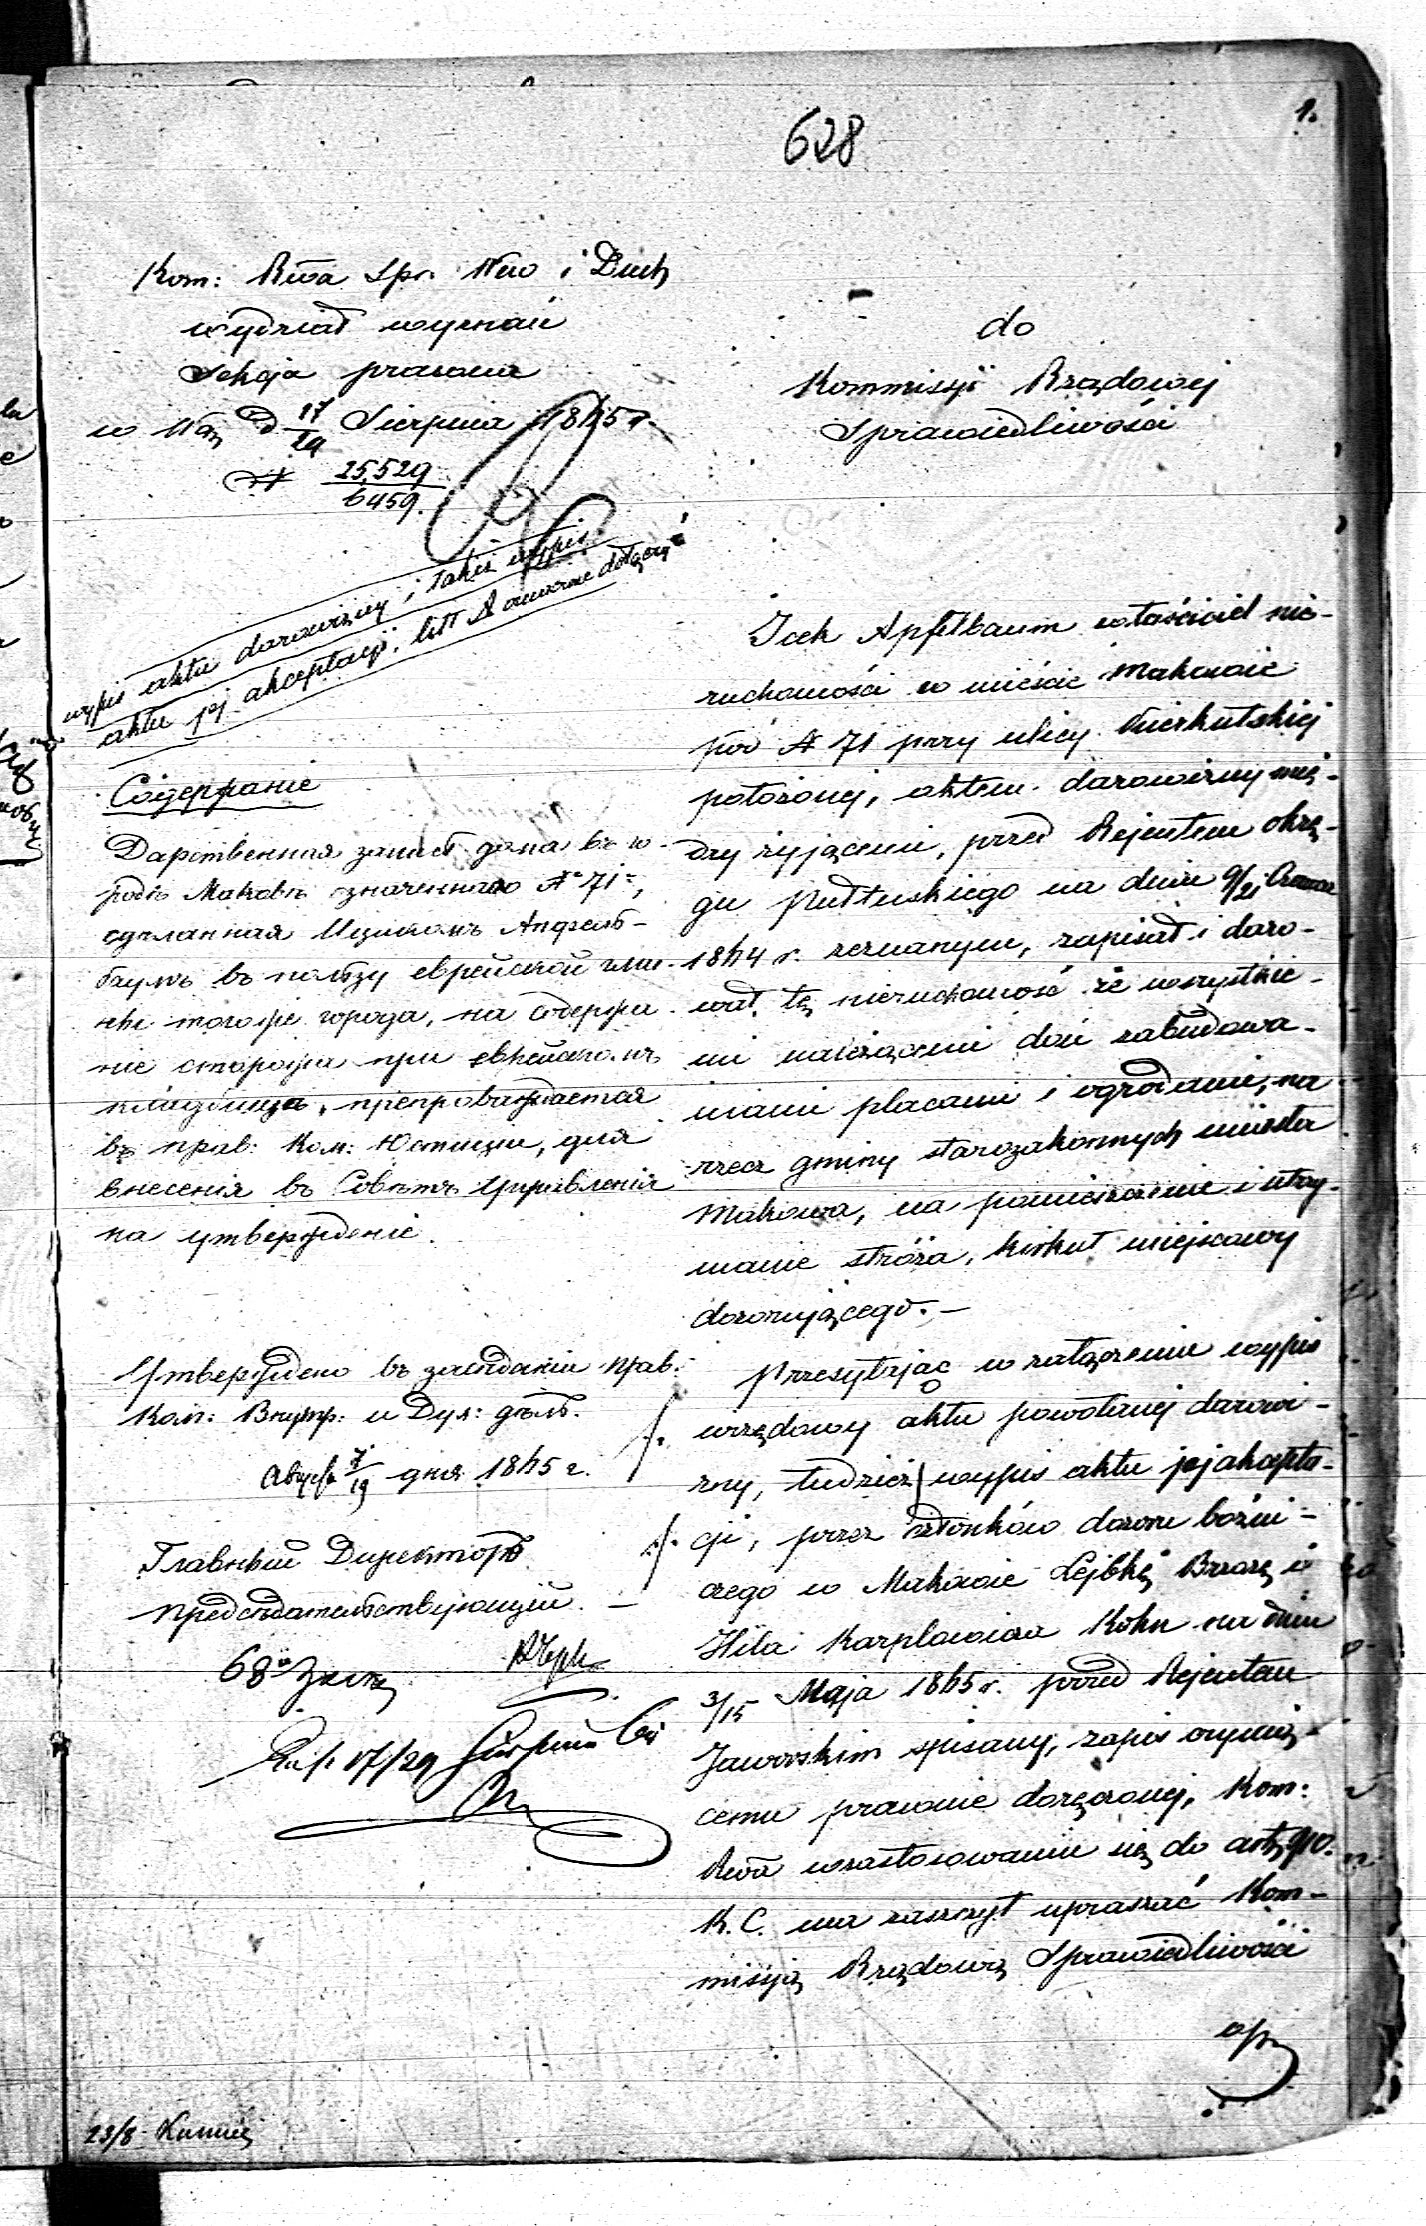 1.
628
Kom: Rwa Spr. Wew i Duch
wydział wyznań
Sekcja prawna
w Wa d 17/29 Sierpnia 1845 r.
N 25,529/6459.
wypis aktu darowizny i takiż wypis
aktu jej akceptacyi, litt A dołączyć
do
Kommissyi Rządowej
Sprawiedliwości
Содержаніе
Дарственная запись дома въ го-
родѣ Маковѣ означеннаго № 71,
сдѣланная Ицикомъ Апфель-
баумъ въ пользу еврейской гми-
ны тогоже города, на содержа-
ніе сторожа при еврейскомъ
кладбищѣ, препровождается
въ прав: Ком: Юстиціи, для
внесенія въ Совѣтъ Управленія
на утвержденіе.
Утверждено въ засѣданіи прав:
Ком: Внутр: и Дух: дѣлъ.
Августа 7/19 дня 1845 г.
Главный Директоръ
предсѣдательствующій.
Rap 17/29 Sierpnia
23/8
Icek Apfelbaum właściciel nie-
ruchomości w mieście Makowie
pod N 71 przy ulicy Kierkutskiej
położonej, aktem darowizny mię-
dzy żyjącemi, przed Rejentem okrę-
gu Pułtuskiego na dniu 9/21 Czerwca
1844 r. zeznanym, zapisał i daro-
wał tę nieruchomość ze wszystkie-
mi należącemi doń zabudowa-
niami placami i ogrodami, na
rzecz gminy starozakonnych miasta
Makowa, na pomieszczenie i utrzy-
manie stróża, kirkut miejscowy
dozorującego. —
Przesyłając w załączeniu wypis
urzędowy aktu powołanej darowi-
zny, tudzież wypis aktu jej akcepta-
cji, przez członków dozoru bóźni-
czego w Makowie Lejbkę Brzozę i
Hila Karplowicza Kohn na dniu
3/15 Maja 1845 r. przed Rejentem
Jaworskim spisany, zapis czynią-
cemu prawnie doręczonej, Kom:
Rwa w zastosowaniu się do art. 910.
K. C. ma zaszczyt upraszać Kom-
misyą Rządową Sprawiedliwości